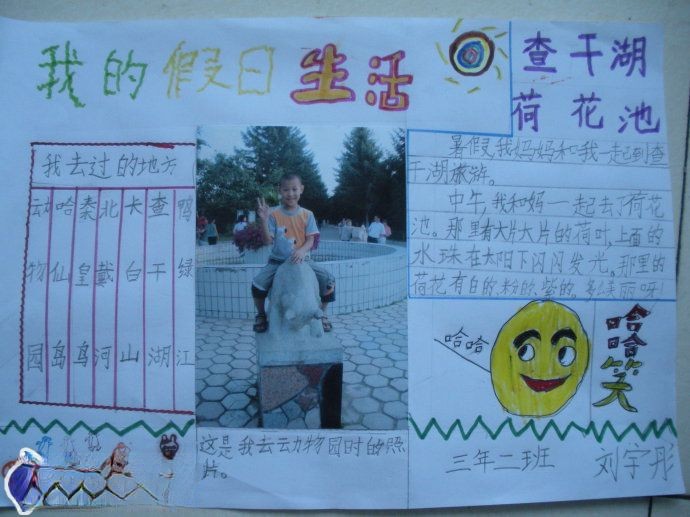 我的假日生活
查干湖
荷花池
我去过的地方
动物园
哈仙岛
秦皇鸟
北戴河
长白山
查干湖
鸭绿江
这是我去动物园时的照
片。
暑假,我妈妈和我一起到查
干湖旅游。
中午,我和妈一起去了荷花
池。那里有大片大片的荷叶,上面的
水珠在太阳下闪闪发光。那里的
荷花有白的,粉的,紫的,多美丽呀!
哈哈
哈哈笑
三年二班 刘宇彤